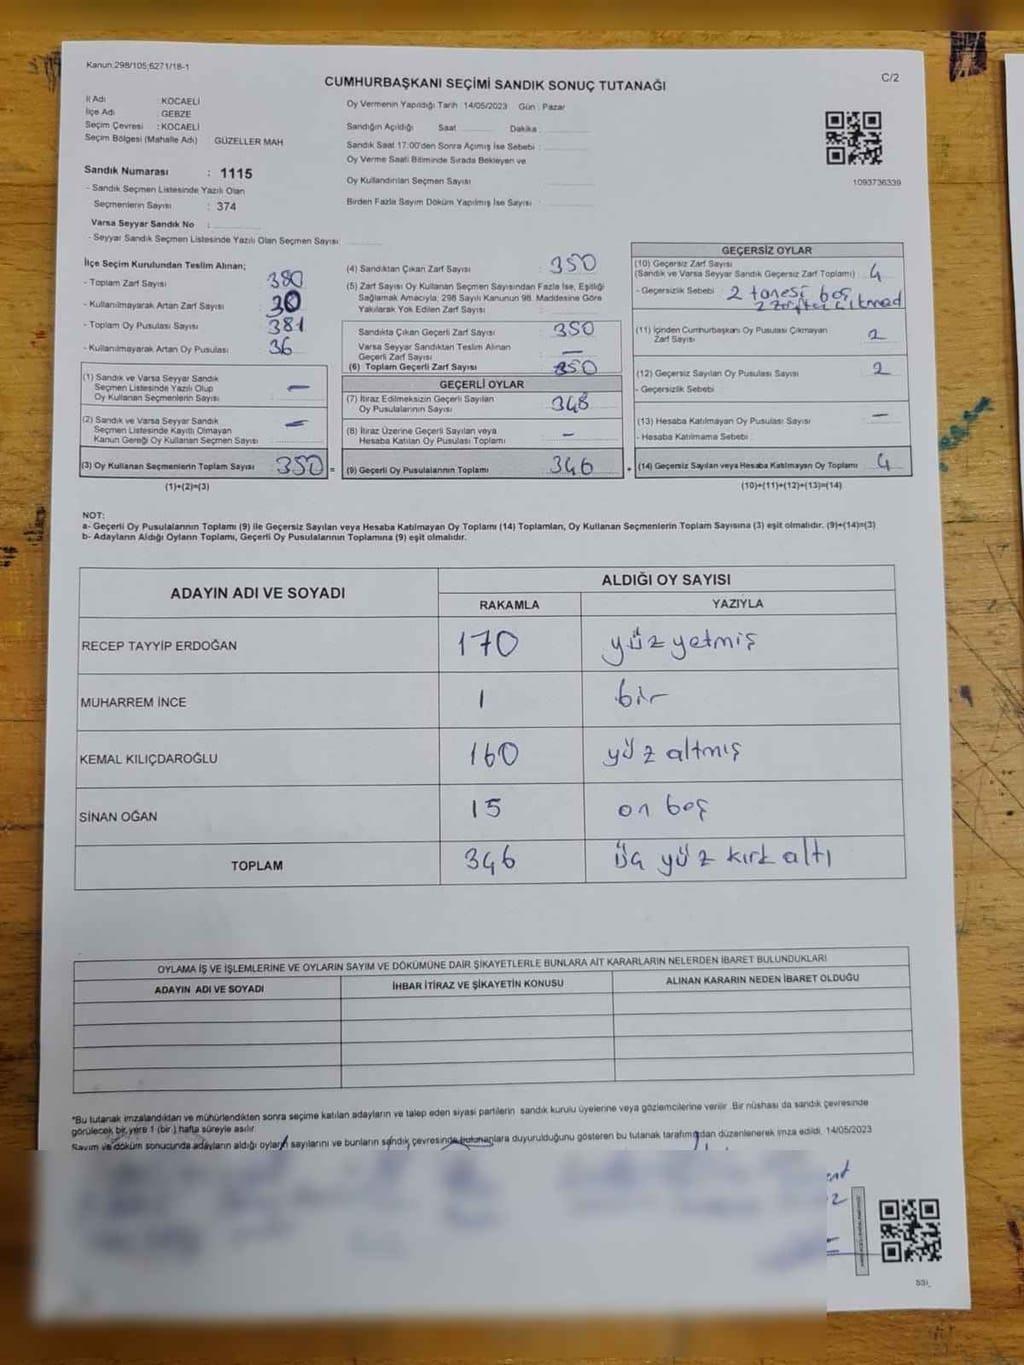 Kanun:298/105;6271/18-1
C/2
CUMHURBAŞKANI SEÇİMİ SANDIK SONUÇ TUTANAĞI
İl Adı : KOCAELİ
İlçe Adı : GEBZE
Seçim Çevresi : KOCAELİ
Seçim Bölgesi (Mahalle Adı) GÜZELLER MAH
Sandık Numarası : 1115
- Sandık Seçmen Listesinde Yazılı Olan
Seçmenlerin Sayısı : 374
Varsa Seyyar Sandık No :
- Seyyar Sandık Seçmen Listesinde Yazılı Olan Seçmen Sayısı:
Oy Vermenin Yapıldığı Tarih :14/05/2023 Gün : Pazar
Sandığın Açıldığı Saat Dakika
Sandık Saat 17:00'den Sonra Açımış İse Sebebi :
Oy Verme Saati Bitiminde Sırada Bekleyen ve
Oy Kullandırılan Seçmen Sayısı
Birden Fazla Sayım Döküm Yapılmış İse Sayısı :
1093736339
İlçe Seçim Kurulundan Teslim Alınan;
- Toplam Zarf Sayısı : 380
- Kullanılmayarak Artan Zarf Sayısı : 30
- Toplam Oy Pusulası Sayısı : 381
- Kullanılmayarak Artan Oy Pusulası : 36
(1) Sandık ve Varsa Seyyar Sandık
Seçmen Listesinde Yazılı Olup
Oy Kullanan Seçmenlerin Sayısı : —
(2) Sandık ve Varsa Seyyar Sandık
Seçmen Listesinde Kayıtlı Olmayan
Kanun Gereği Oy Kullanan Seçmen Sayısı : —
(3) Oy Kullanan Seçmenlerin Toplam Sayısı : 350 =
(1)+(2)=(3)
(4) Sandıktan Çıkan Zarf Sayısı : 350
(5) Zarf Sayısı Oy Kullanan Seçmen Sayısından Fazla İse, Eşitliği
Sağlamak Amacıyla, 298 Sayılı Kanunun 98. Maddesine Göre
Yakılarak Yok Edilen Zarf Sayısı :
Sandıkta Çıkan Geçerli Zarf Sayısı : 350
Varsa Seyyar Sandıktan Teslim Alınan
Geçerli Zarf Sayısı : —
(6) Toplam Geçerli Zarf Sayısı : 350
GEÇERLİ OYLAR
(7) İtiraz Edilmeksizin Geçerli Sayılan
Oy Pusulalarının Sayısı : 348
(8) İtiraz Üzerine Geçerli Sayılan veya
Hesaba Katılan Oy Pusulası Toplamı : —
(9) Geçerli Oy Pusulalarının Toplamı : 346 +
GEÇERSİZ OYLAR
(10) Geçersiz Zarf Sayısı
(Sandık ve Varsa Seyyar Sandık Geçersiz Zarf Toplamı) : 4
- Geçersizlik Sebebi : 2 tanesi boş
(11) İçinden Cumhurbaşkanı Oy Pusulası Çıkmayan
Zarf Sayısı : 2
(12) Geçersiz Sayılan Oy Pusulası Sayısı : 2
- Geçersizlik Sebebi :
(13) Hesaba Katılmayan Oy Pusulası Sayısı : —
- Hesaba Katılmama Sebebi :
(14) Geçersiz Sayılan veya Hesaba Katılmayan Oy Toplamı : 4
(10)+(11)+(12)+(13)=(14)
NOT:
a- Geçerli Oy Pusulalarının Toplamı (9) ile Geçersiz Sayılan veya Hesaba Katılmayan Oy Toplamı (14) Toplamları, Oy Kullanan Seçmenlerin Toplam Sayısına (3) eşit olmalıdır. (9)+(14)=(3)
b- Adayların Aldığı Oyların Toplamı, Geçerli Oy Pusulalarının Toplamına (9) eşit olmalıdır.
ADAYIN ADI VE SOYADI
ALDIĞI OY SAYISI
RAKAMLA YAZIYLA
RECEP TAYYİP ERDOĞAN 170 yüz yetmiş
MUHARREM İNCE 1 bir
KEMAL KILIÇDAROĞLU 160 yüz altmış
SİNAN OĞAN 15 on beş
TOPLAM 346 üç yüz kırk altı
OYLAMA İŞ VE İŞLEMLERİNE VE OYLARIN SAYIM VE DÖKÜMÜNE DAİR ŞİKAYETLERLE BUNLARA AİT KARARLARIN NELERDEN İBARET BULUNDUKLARI
ADAYIN ADI VE SOYADI İHBAR İTİRAZ VE ŞİKAYETİN KONUSU ALINAN KARARIN NEDEN İBARET OLDUĞU
*Bu tutanak imzalandıktan ve mühürlendikten sonra seçime katılan adayların ve talep eden siyasi partilerin sandık kurulu üyelerine veya gözlemcilerine verilir. Bir nüshası da sandık çevresinde
görülecek bir yere 1 (bir ) hafta süreyle asılır.
Sayım ve döküm sonucunda adayların aldığı oyların sayılarını ve bunların sandık çevresinde bulunanlara duyurulduğunu gösteren bu tutanak tarafımızdan düzenlenerek imza edildi. 14/05/2023